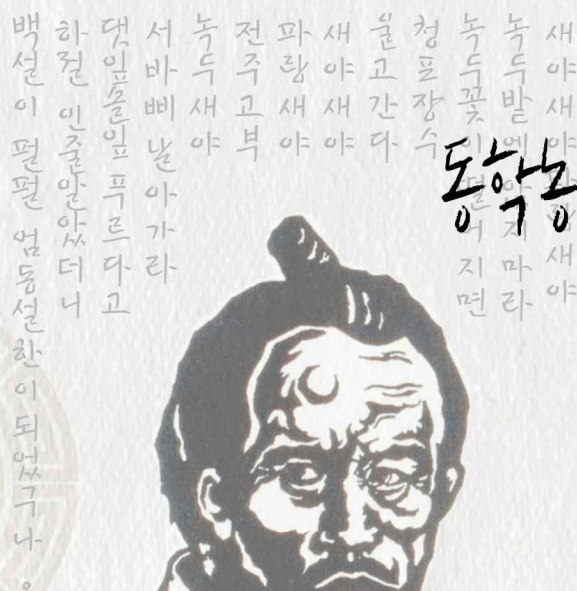 새야 새야 파랑새야
녹두밭에 앉지마라
녹두꽃이 떨어지면
청포장수
울고간다
새야새야
파랑새야
전주고부
녹두새야
서바삐 날아가라
댓잎솔잎 푸르다고
하절 인줄알았더니
백설이 펄펄 엄동설한이 되었구나。
동학농